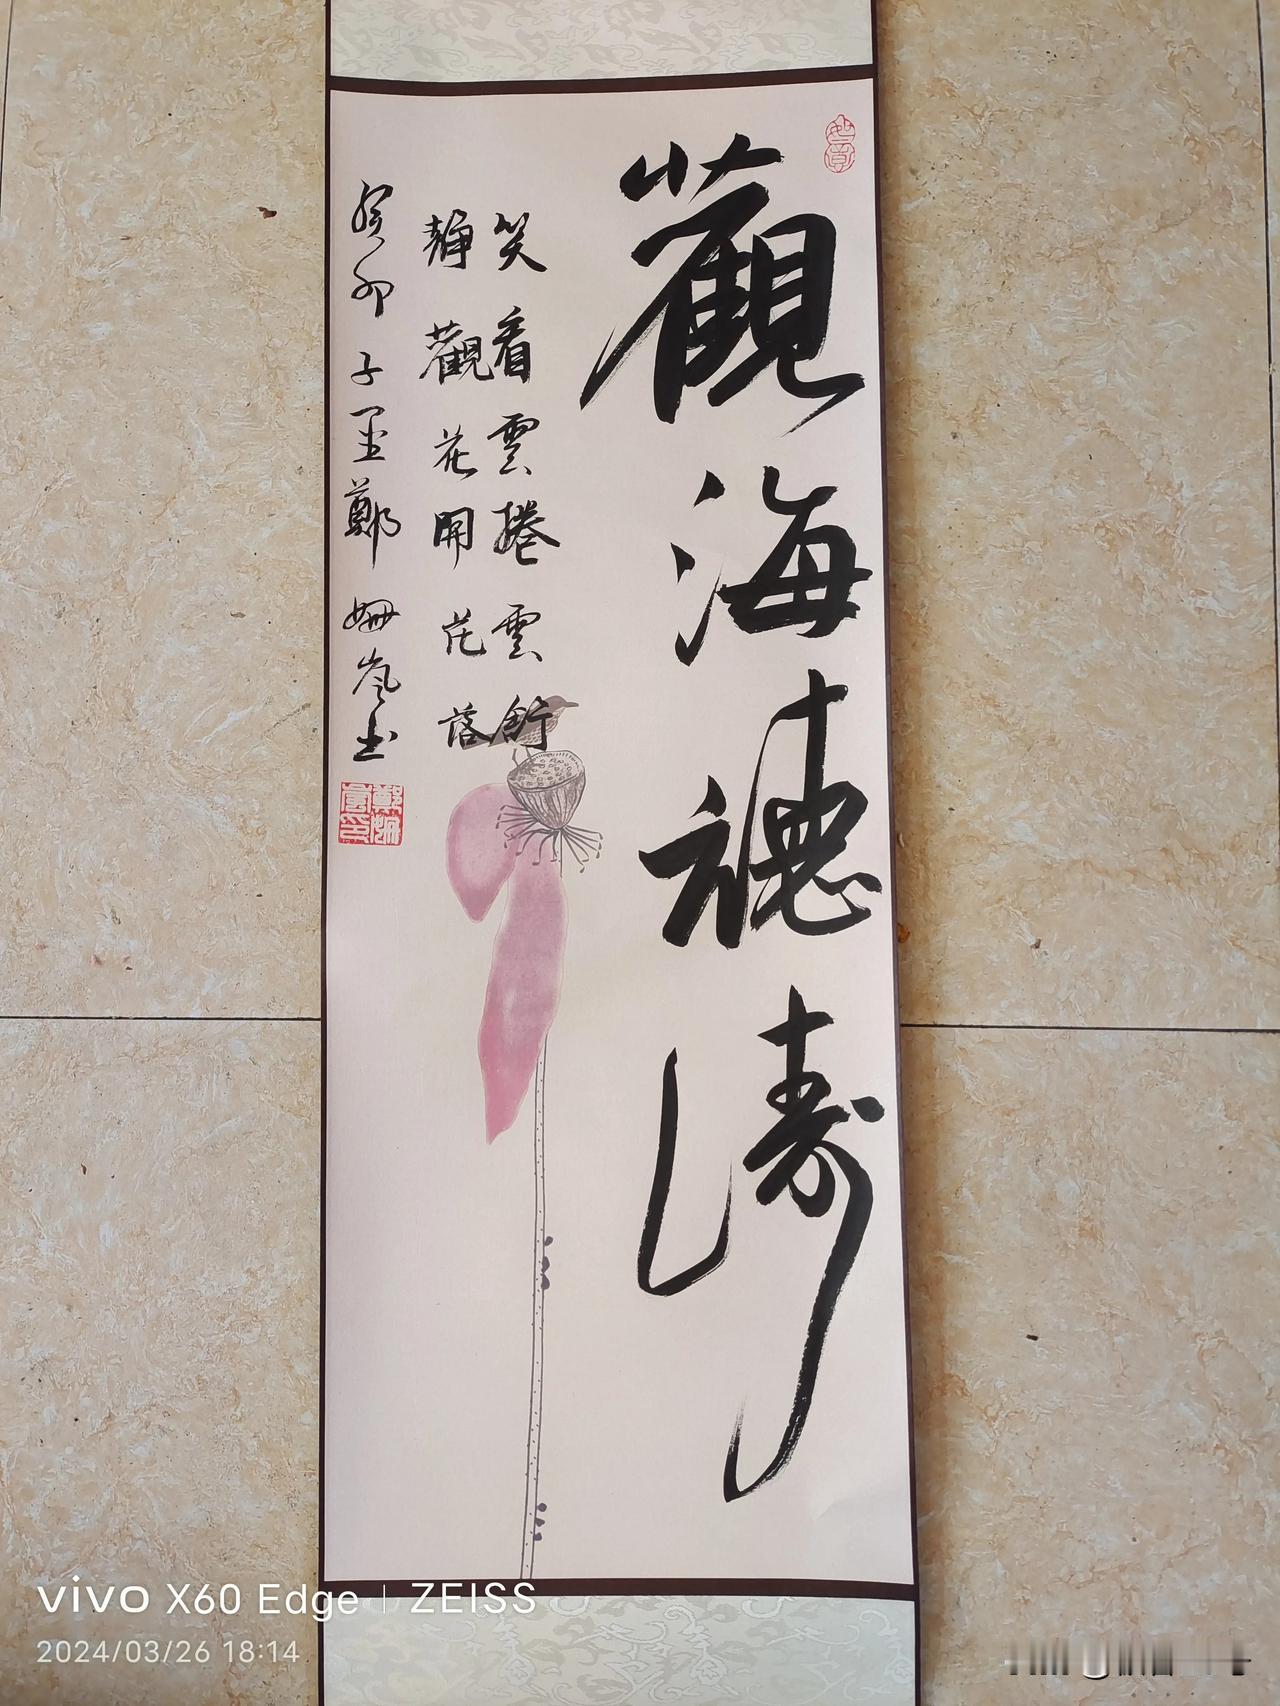 觀海聽濤
笑看雲捲雲舒
靜觀花開花落
癸卯 子墨鄭姍嵐书
如意
vivo X60 Edge | ZEISS
2024/03/26 18:14